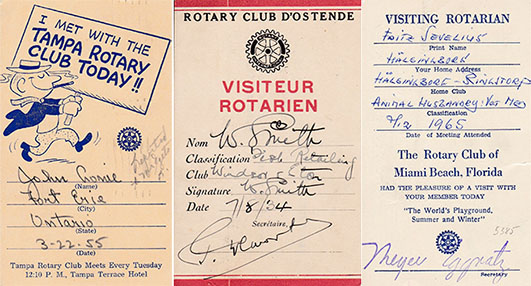 I MET WITH THE
TAMPA ROTARY
CLUB TODAY!!
John
(Name)
Fort Erie
(City)
Ontario
(State)
3-22-55
(Date)
Tampa Rotary Club Meets Every Tuesday
12:10 P. M., Tampa Terrace Hotel
ROTARY CLUB D'OSTENDE
VISITEUR
ROTARIEN
Nom W. Smith
Classification Retailing
Club Windsor & Eton
Signature W. Smith
Date 7/8/34
Secrétaire,
VISITING ROTARIAN
Fritz Sevelius
Print Name
Hälsingborg
Your Home Address
Hälsingborg - Ringstorp
Home Club
Animal Husbandry
Classification
1965
Date of Meeting Attended
The Rotary Club of
Miami Beach, Florida
HAD THE PLEASURE OF A VISIT WITH
YOUR MEMBER TODAY
"The World's Playground,
Summer and Winter"
Meyer
Secretary